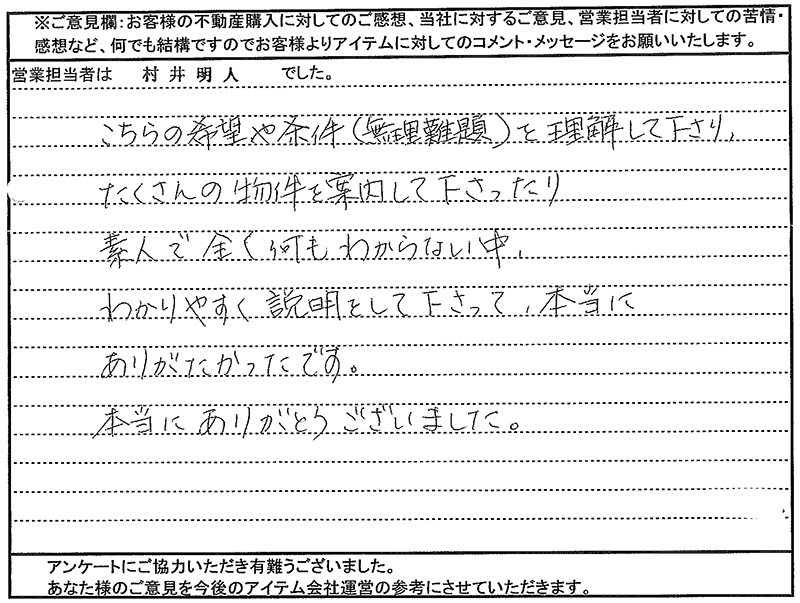 ※ご意見欄:お客様の不動産購入に対してのご感想、当社に対するご意見、営業担当者に対しての苦情・
感想など、何でも結構ですのでお客様よりアイテムに対してのコメント・メッセージをお願いいたします。
営業担当者は 村井明人 でした。
こちらの希望や条件(無理難題)を理解して下さり、
たくさんの物件を案内して下さったり
素人で全く何もわからない中、
わかりやすく説明をして下さって、本当に
ありがたかったです。
本当にありがとうございました。
アンケートにご協力いただき有難うございました。
あなた様のご意見を今後のアイテム会社運営の参考にさせていただきます。